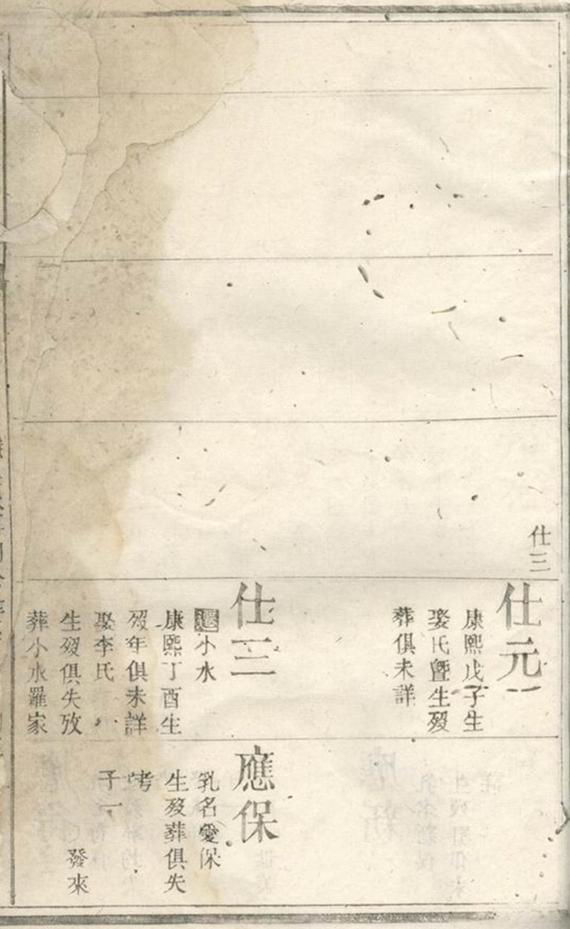 仕三
仕元
康熙戊子生
娶氏曁生殁
葬俱未詳
仕三
遷小水
康熙丁酉生
殁年俱未詳
娶李氏
生殁俱失攷
葬小水羅家
應保
乳名愛保
生殁葬俱失
考
子一
發來